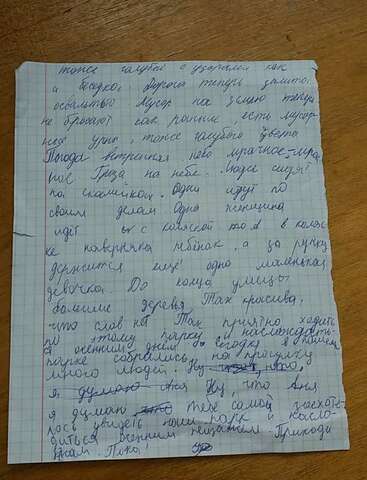 тоже голубые с узорами как
и беседка. Дорога теперь залита
асвальтом Мусор на землю теперь
не бросают как раньше есть мусор-
ные урны, тоже голубого цвета
Погода ветренная небо мрачное-мра
ное Гроза на небе. Люди сидят
на скамейках. Одни идут по
своим делам Одна женщина
идёт с коляской в коляс
ке наверняка ребёнок, а за ручку
держится ещё одна маленькая
девочка. До конца улицы
большие деревя. Так красиво,
что слов нет Так приятно ходить
по этому парку и наслаждать-
ся осенним днём. Сегодня в нашем
парке собрались на прогулку
много людей. Ну что,
я думаю Аня Ну, что Аня
я думаю тебе самой захоте-
лось увидеть наш парк и насло-
диться осенним пейзажем. Приходи
к нам. Пока!